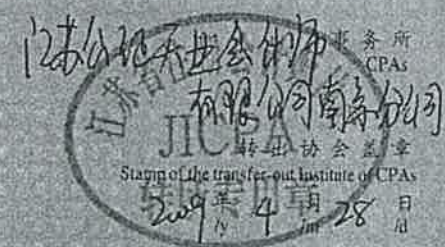 江苏公证天业会计师事务所
CPAs
有限公司南京分公司
江苏省注册会计师协会
JICPA
转出协会盖章
Stamp of the transfer-out Institute of CPAs
2009年 4月 28日
/y /m /d